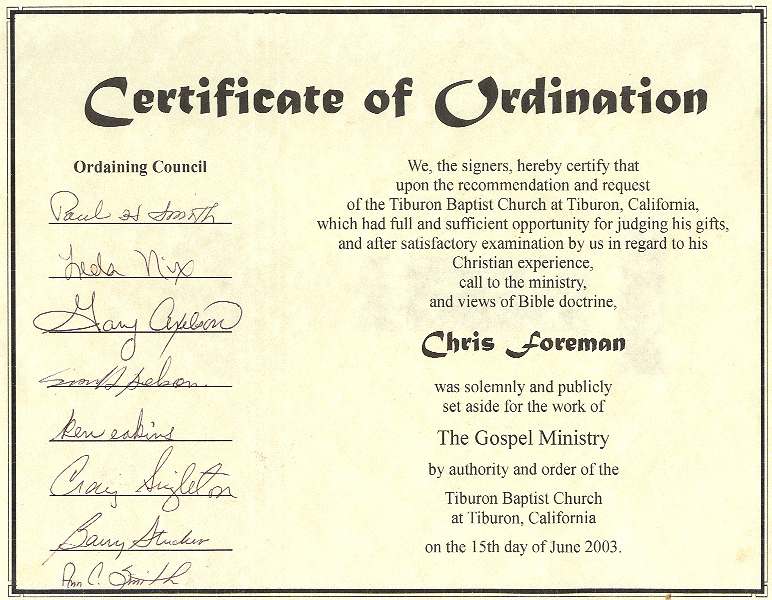 Certificate of Ordination
Ordaining Council
Paul H Smith
Leda Nix
Gary Axelson
Ken eakins
Craig Singleton
Barry Stricker
Ann C. Smith
We, the signers, hereby certify that
upon the recommendation and request
of the Tiburon Baptist Church at Tiburon, California,
which had full and sufficient opportunity for judging his gifts,
and after satisfactory examination by us in regard to his
Christian experience,
call to the ministry,
and views of Bible doctrine,
Chris Foreman
was solemnly and publicly
set aside for the work of
The Gospel Ministry
by authority and order of the
Tiburon Baptist Church
at Tiburon, California
on the 15th day of June 2003.